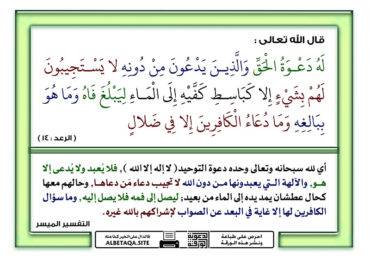 قال الله تعالى :
لَهُ دَعْوَةُ الْحَقِّ وَالَّذِينَ يَدْعُونَ مِنْ دُونِهِ لا يَسْتَجِيبُونَ
لَهُمْ بِشَيْءٍ إِلا كَبَاسِطِ كَفَّيْهِ إِلَى الْمَاءِ لِيَبْلُغَ فَاهُ وَمَا هُوَ
بِبَالِغِهِ وَمَا دُعَاءُ الْكَافِرِينَ إِلا فِي ضَلالٍ
( الرعد : ١٤ )
أي لله سبحانه وتعالى وحده دعوة التوحيد ( لا إله إلا الله ) , فلا يُعبد ولا يُدعى إلا
هـو , والآلهة الـتي يعبدونها مـن دون الله لا تجيب دعاء مَن دعاهـا , وحالهم معها
كحال عطشان يمد يده إلى الماء من بعيد; ليصل إلى فمه فلا يصل إليه , وما سؤال
الكافرين لها إلا غاية في البعد عن الصواب لإشراكهم بالله غيره .
التفسير الميسر
ALBETAQA.SITE
احرص على طباعة
ونشر هذه الورقة